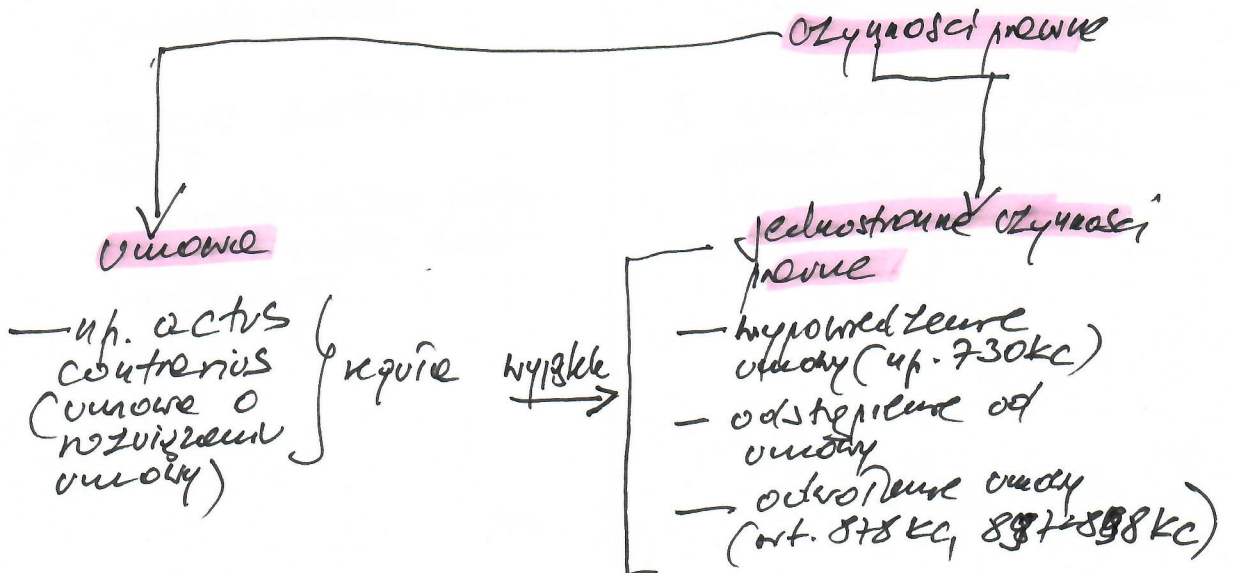 czynności prawne
umowa
— np. actus
contrarius
(umowa o
rozwiązaniu
umowy)
reguła
wyjątek
jednostronne czynności
prawne
— wypowiedzenie
umowy (np. 730 KC)
— odstąpienie od
umowy
— odwołanie umowy
(art. 878 KC,